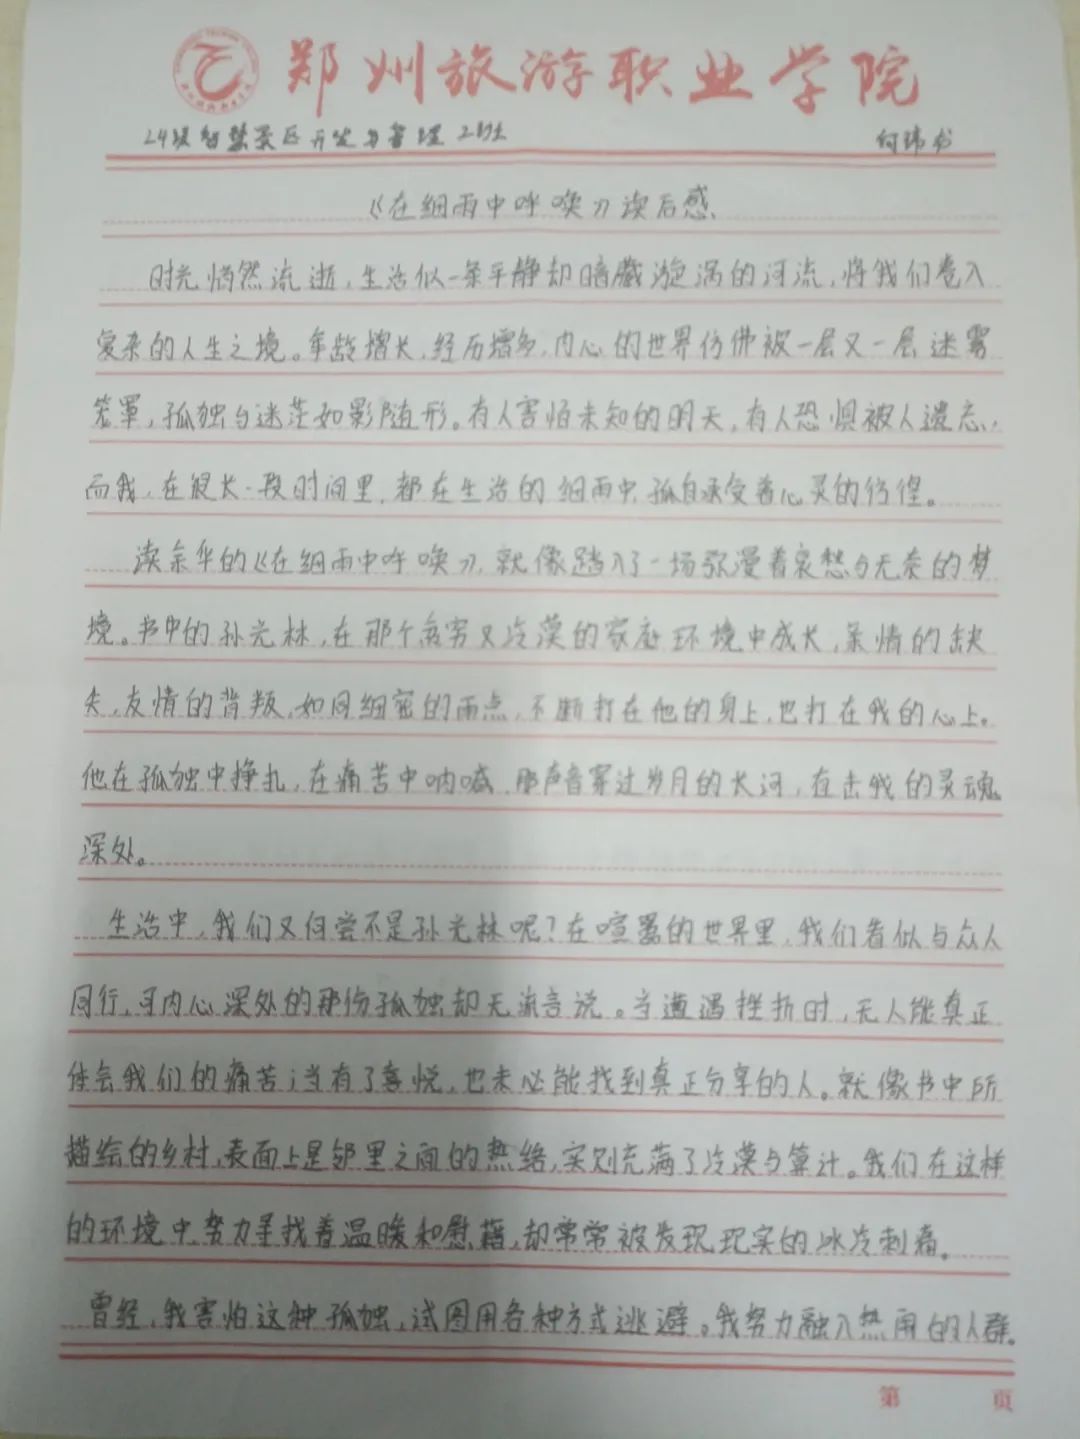 郑州旅游职业学院
24级智慧景区开发与管理2班 何玮书
《在细雨中呼唤》读后感
时光悄然流逝,生活似一条平静却暗藏漩涡的河流,将我们卷入
复杂的人生之境。年龄增长,经历增多,内心的世界仿佛被一层又一层迷雾
笼罩,孤独与迷茫如影随形。有人害怕未知的明天,有人恐惧被人遗忘,
而我,在很长一段时间里,都在生活的细雨中,孤自承受着心灵的彷徨。
读余华的《在细雨中呼唤》,就像踏入了一场弥漫着哀愁与无奈的梦
境。书中的孙光林,在那个贫穷又冷漠的家庭环境中成长,亲情的缺
失,友情的背叛,如同细密的雨点,不断打在他的身上,也打在我的心上。
他在孤独中挣扎,在痛苦中呐喊,那声音穿过岁月的长河,在击我的灵魂
深处。
生活中,我们又何尝不是孙光林呢?在喧嚣的世界里,我们看似与众人
同行,可内心深处的那份孤独却无流言说。当遭遇挫折时,无人能真正
体会我们的痛苦;当有了喜悦,也未必能找到真正分享的人。就像书中所
描绘的乡村,表面上是邻里之间的热络,实则充满了冷漠与算计。我们在这样
的环境中,努力寻找着温暖和慰藉,却常常被发现现实的冰冷刺痛。
曾经,我害怕这种孤独,试图用各种方式逃避。我努力融入热闹的人群。
第 页